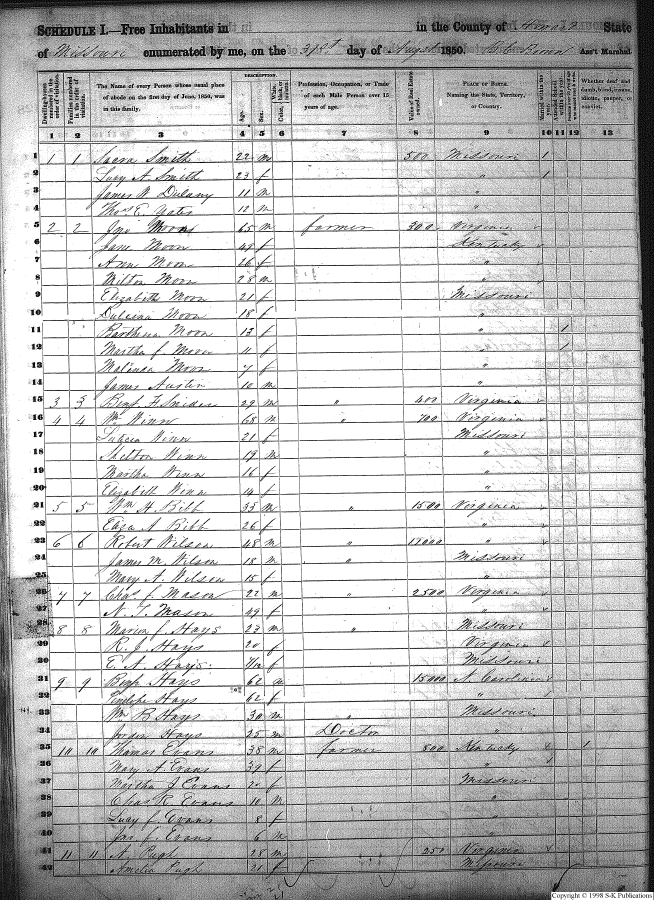 SCHEDULE I.—Free Inhabitants in in the County of Howard State
of Missouri enumerated by me, on the 31st day of August 1850. Ass't Marshal.
DESCRIPTION.
Dwelling-houses numbered in the order of visitation.
Families numbered in the order of visitation.
The Name of every Person whose usual place of abode on the first day of June, 1850, was in this family.
Age.
Sex.
White, Color, black, or mulatto.
Profession, Occupation, or Trade of each Male Person over 15 years of age.
Value of Real Estate owned.
PLACE OF BIRTH. Naming the State, Territory, or Country.
Married within the year.
Whether deaf and dumb, blind, insane, idiotic, pauper, or convict.
1 2 3 4 5 6 7 8 9 10 11 12 13
1 1 1 Smith 22 m 500 Missouri 1
2 Lucy A. Smith 23 f " 1
3 James W Dulany 11 m "
4 Thos E. Yates 12 m "
5 2 2 Jno Moon 65 m farmer 300 Virginia
6 Jane Moon 49 f Kentucky
7 Ann Moon 26 f "
8 Milton Moon 28 m "
9 Elizabeth Moon 21 f Missouri
10 Moon 18 f "
11 Moon 13 f " 1
12 Martha f. Moon 11 f " 1
13 Malinda Moon 7 f "
14 James Austin 10 m "
15 3 3 Benj F Snider 29 m " 400 Virginia
16 4 4 Wm Winn 68 m " 700 Virginia
17 Winn 21 f Missouri
18 Shelton Winn 19 m "
19 Martha Winn 16 f "
20 Elizabeth Winn 14 f "
21 5 5 Wm H. Bibb 35 m " 1500 Virginia
22 Eliza A Bibb 26 f "
23 6 6 Robert Wilson 48 m " "
24 James M. Wilson 18 m " Missouri
25 Mary A. Wilson 15 f "
26 7 7 Chas f Mason 22 m " 2500 Virginia
27 N. T. Mason 49 f "
28 8 8 Marion f. Hays 23 m " Missouri
29 R. J. Hays 20 f Virginia
30 E. A Hays f Missouri
31 9 9 Benj Hays 62 m 15000 N. Carolina
32 Penelope Hays 62 f "
33 Wm B Hays 30 m " Missouri
34 Hays 25 m Doctor "
35 10 10 Thomas Evans 38 m farmer 800 Kentucky 1
36 Mary A. Evans 39 f "
37 Martha J Evans f Missouri
38 Chas R Evans 10 m "
39 Lucy f. Evans 8 f "
40 Jas f. Evans 6 m "
41 11 11 A. Pugh 28 m 250 Virginia
42 Amelia Pugh f Missouri
Copyright © 1998 S-K Publications